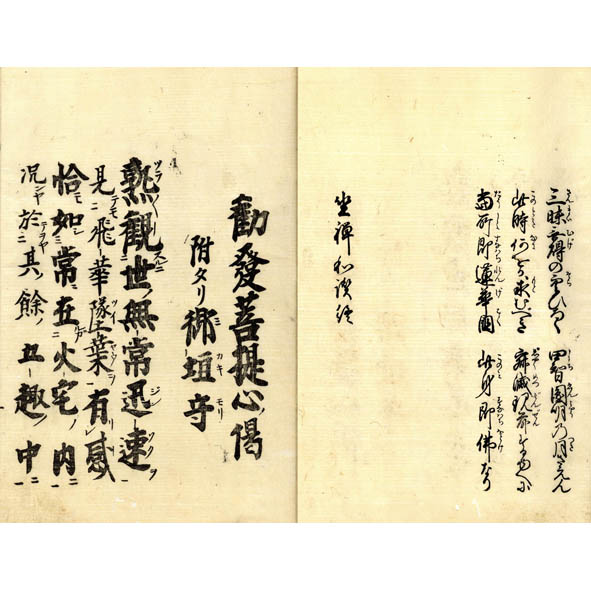 三昧無礙の空ひろく 四智圓明の月さえん
此時何をか求むべき 寂滅現前するゆへに
當所即蓮華國 此身即佛なり
坐禪和讃終
勸發菩提心偈
附タリ御垣守
熟觀世無常迅速
見飛華墜葉有感
恰如常在火宅内
况於其餘五趣中